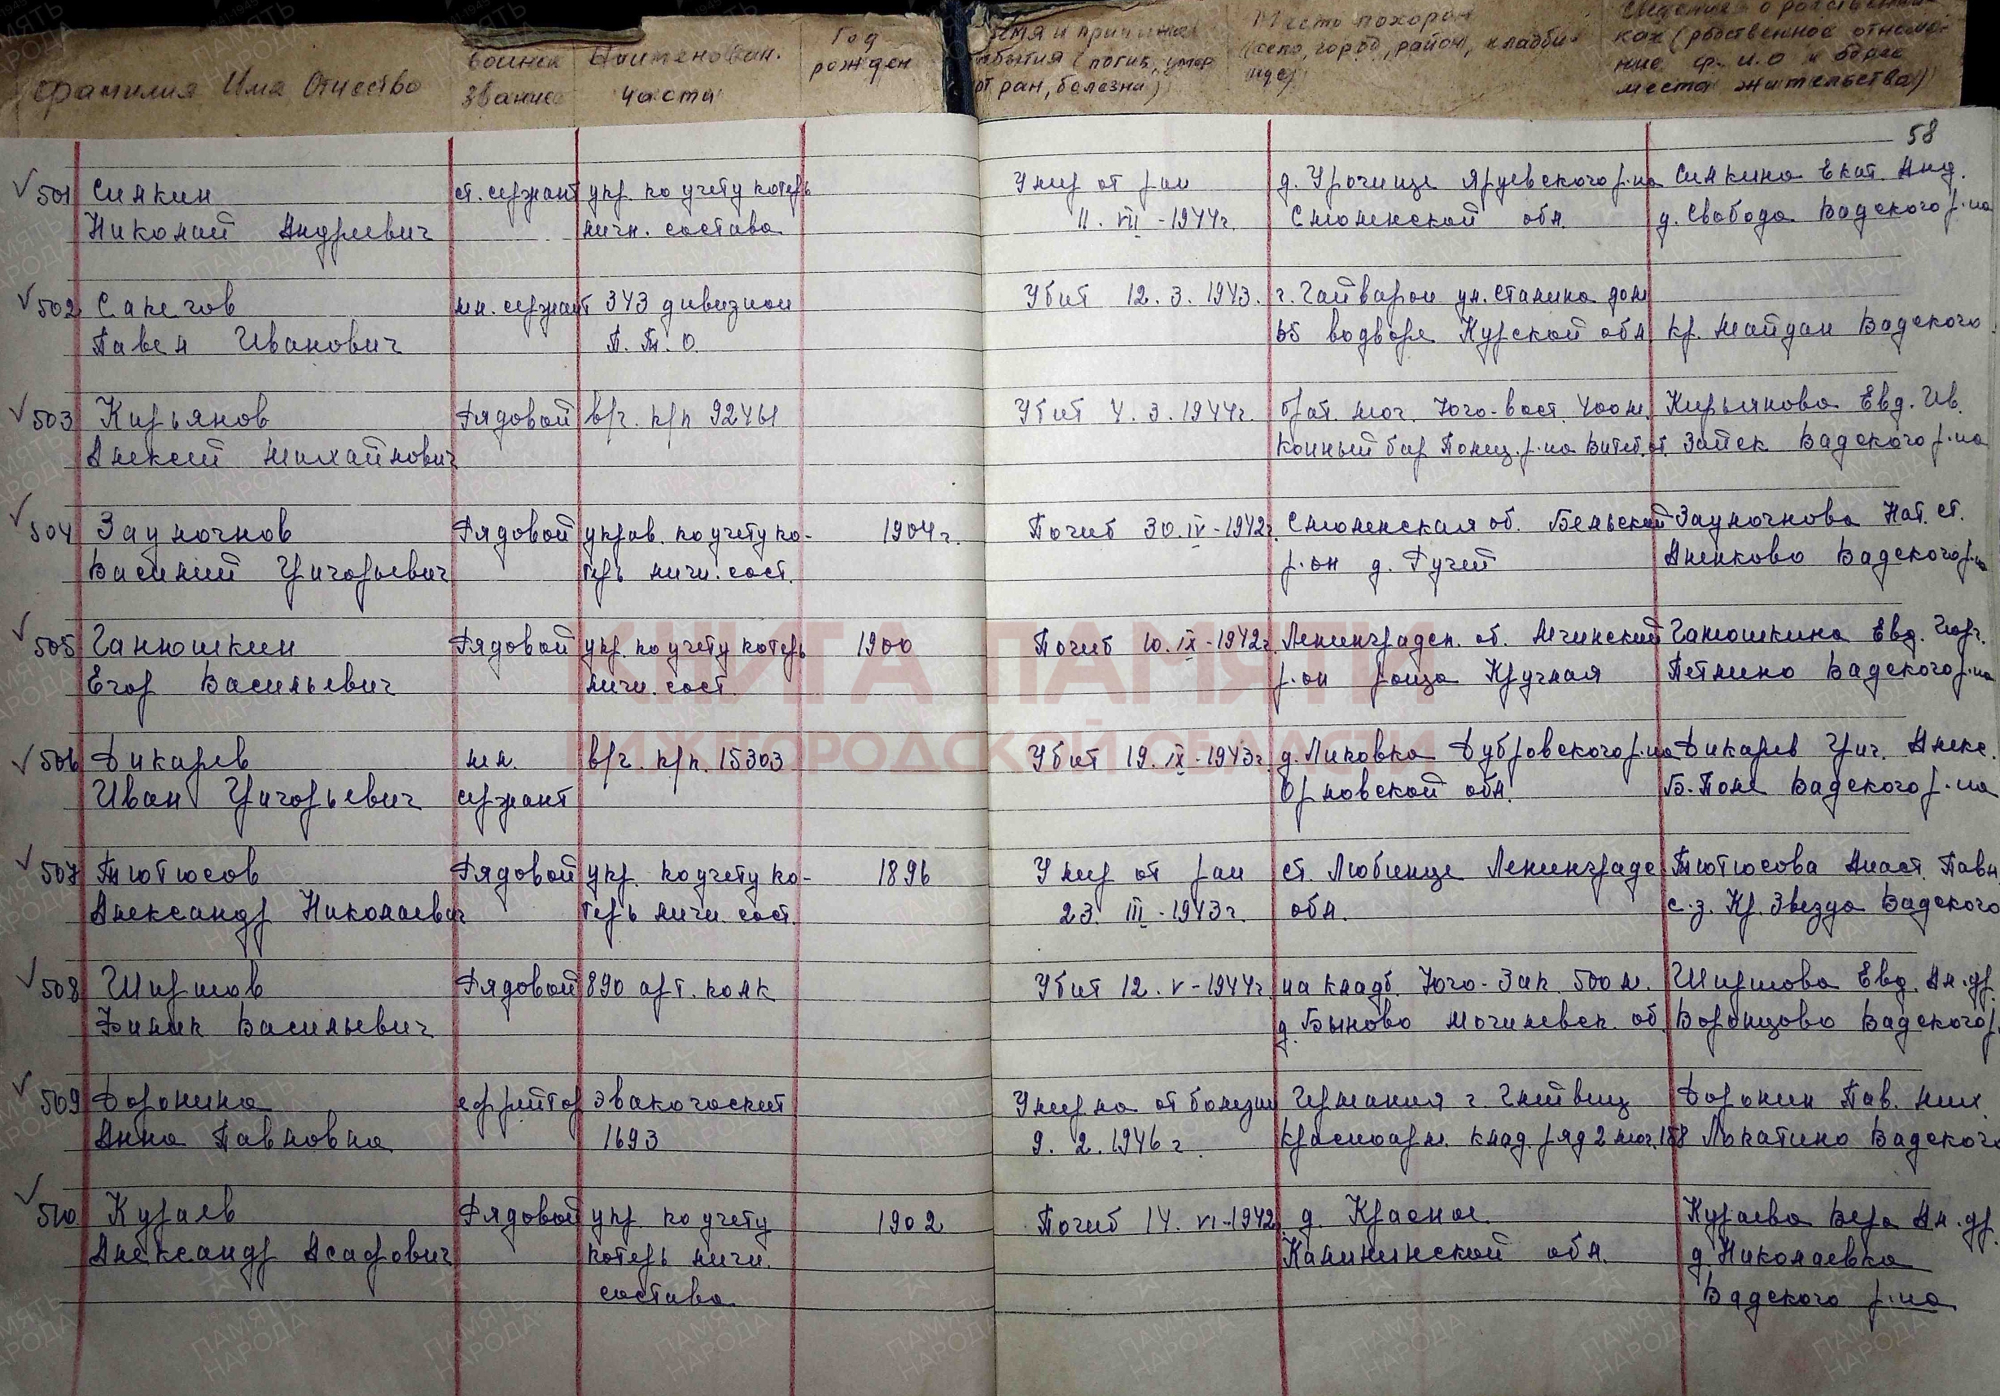 Фамилия Имя Отчество
воинск звание
Наименован. части
Год рожден
Время и причина выбытия (погиб, умер от ран, болезни)
Место похорон (село, город, район, кладбище)
Сведения о родственниках (родственное отношение ф.и.о и адрес места жительства)
58
501 Силкин ст. сержант упр. по учету потерь Умер от ран д. Урочище Ярцевского р-на Силкина Екат. Анд.
Николай Андреевич личн. состава 11. VII - 1944г. Смоленской обл. д. Свобода Вадского р-на
502 Сапегов мл. сержант 343 дивизион Убит 12. 3. 1943. г. Гайварон ул. Сталина дом
Павел Иванович П. Т. О. 65 во дворе Курской обл Кр. Майдан Вадского
503 Кирьянов Рядовой в/ч. п/п 92461 Убит 4. 3. 1944г. брат. мог. Юго-вост. 400м. Кирьянова Евд. Ив.
Алексей Михайлович Конный бар Витеб. от Зайск Вадского р-на
504 Заулочнов Рядовой управ. по учету по- 1904г. Погиб 30. IV - 1942г. Смоленская об. Бельский Заулочнова Нат. ст.
Василий Григорьевич терь личн. сост. р-он д. Ручей Аненково Вадского р-на
505 Ганюшкин Рядовой упр. по учету потерь 1900 Погиб 10. IX - 1942г. Ленинградск. об. Мгинский Ганюшкина Евд. Геор.
Егор Васильевич личн. сост. р-он роща Круглая Петлино Вадского р-на
506 Дикарев мл. в/ч. п/п. 15303 Убит 19. IX - 1943г. д. Липовка Дубровского р-на Дикарев Григ. Алекс.
Иван Григорьевич сержант Орловской обл. Б. Поле Вадского р-на
507 Тютюсов Рядовой упр. по учету по- 1896 Умер от ран ст. Любинце Ленинградс Тютюсова Анаст. Павл.
Александр Николаевич терь личн. сост. 23. III - 1943г. обл. с-з. Кр. Звезда Вадского
508 Ширшов Рядовой 890 арт. полк Убит 12. V - 1944г. на кладб. Юго-Зап. 500 м. Ширшова Евд. Ал-др.
Филип Васильевич д. Быново Могилевск. об. Воронцово Вадского р.
509 Доронина ефрейтор эвакогоспит Умерла от болезни Германия г. Глейвиц Доронин Пав. Мих.
Анна Павловна 1693 9. 2. 1946г. Красноарм. клад. ряд 2 мог. 158 Лопатино Вадского
510 Кураев Рядовой упр. по учету 1902 Погиб 14. VI - 1942 д. Красное. Кураева Вера Ал-др.
Александр Асафович потерь личн. Калининской обл. д. Николаевка
состава Вадского р-на
КНИГА ПАМЯТИ
НИЖЕГОРОДСКОЙ ОБЛАСТИ
ПАМЯТЬ
НАРОДА